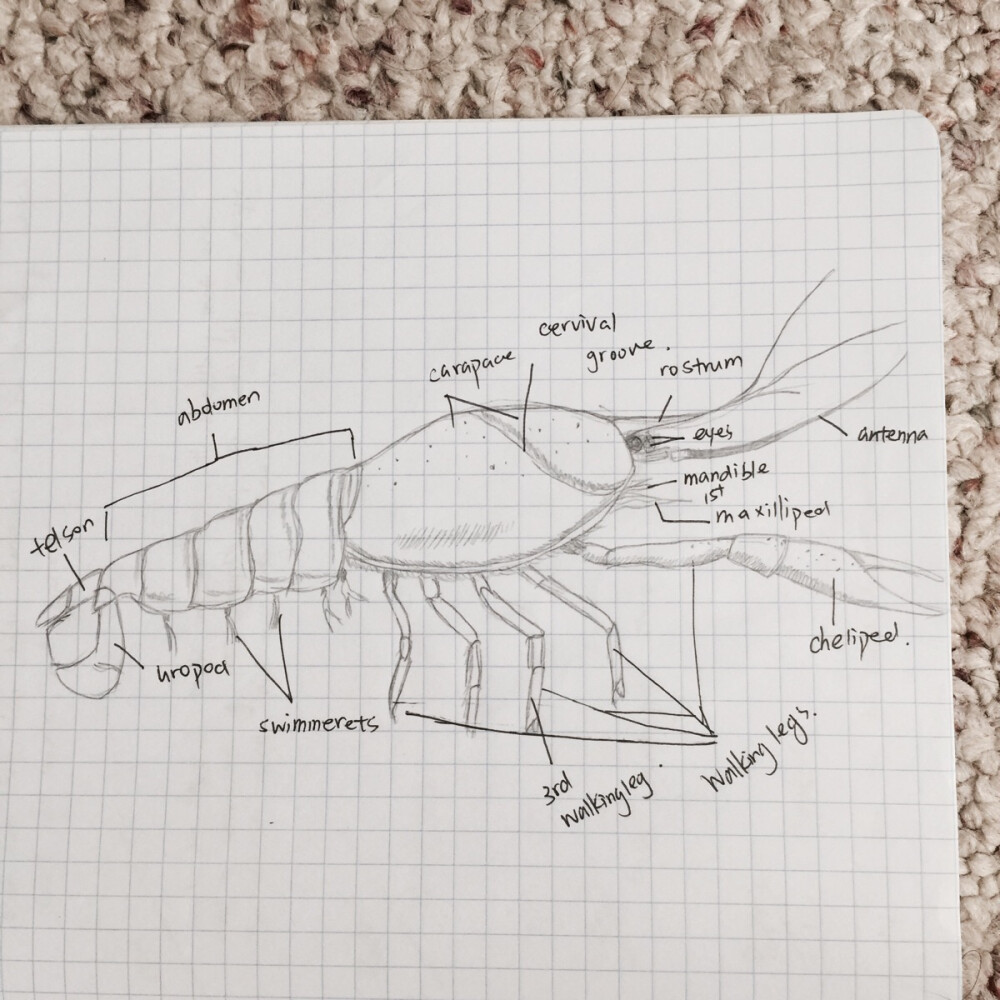 cervival
groove.
carapace
rostrum
abdomen
eyes
antenna
mandible
1st
maxilliped
telson
cheliped.
uropod
swimmerets
walking legs.
3rd
walking leg.